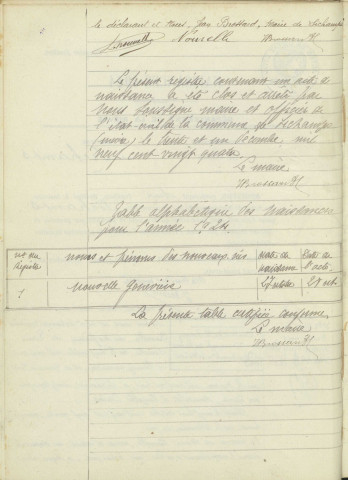 le déclarant et nous, Jean Brossard, maire de Lichamps
Nouvelle Brossard
Le présent registre contenant un acte de
naissance a été clos et arrêté par
nous soussigné maire et officier de
l'état civil de la commune de
le trente et un décembre, mil
neuf cent vingt quatre
Le maire
Brossard
Table alphabétique des naissances
pour l'année 1924.
Nos du Registre noms et prénoms des nouveaux nés Date de naissance Date de l'acte
1 Nouvelle Geneviève 27 octobre 28 oct.
La présente table certifiée conforme
Le maire
Brossard